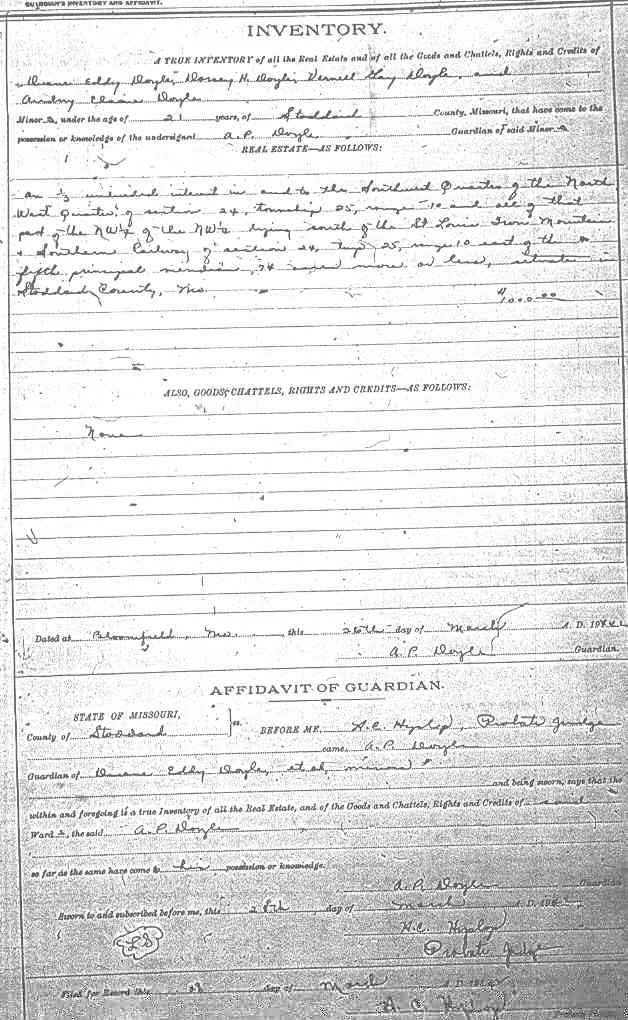 GUARDIAN'S INVENTORY AND AFFIDAVIT.
INVENTORY.
A TRUE INVENTORY of all the Real Estate and of all the Goods and Chattels, Rights and Credits of
Duane Eddy Doyle, Dorsey H. Doyle, Vernell Gay Doyle, and
Doyle
Minor s, under the age of 21 years, of Stoddard County, Missouri, that have come to the
possession or knowledge of the undersigned A.P. Doyle Guardian of said Minor s
REAL ESTATE—AS FOLLOWS:
an 1/3 undivided interest in and to the Southwest Quarter of the North
West Quarter of section 24, township 25, range 10 and all of that
part of the NW¼ of the NW¼ lying south of the St Louis Iron Mountain
& Southern Railway of section 24, Twp 25, range 10 east of the
fifth principal meridian, 74 acres more or less, situate in
Stoddard County, Mo. $1000.00
ALSO, GOODS, CHATTELS, RIGHTS AND CREDITS—AS FOLLOWS:
None
Dated at Bloomfield, Mo. this day of March A. D. 19
A.P. Doyle Guardian.
AFFIDAVIT OF GUARDIAN.
STATE OF MISSOURI,
County of Stoddard } ss. BEFORE ME, H.C. Hyslop, Probate Judge
came A.P. Doyle
Guardian of Duane Eddy Doyle, et al, minors
and being sworn, says that the
within and foregoing is a true Inventory of all the Real Estate, and of the Goods and Chattels, Rights and Credits of said
Ward s, the said A.P. Doyle
so far as the same have come to his possession or knowledge.
A.P. Doyle Guardian
Sworn to and subscribed before me, this 28th day of March A. D. 19
H.C. Hyslop
LS
Probate Judge
Filed for Record this day of March A. D. 19
H. C. Hyslop